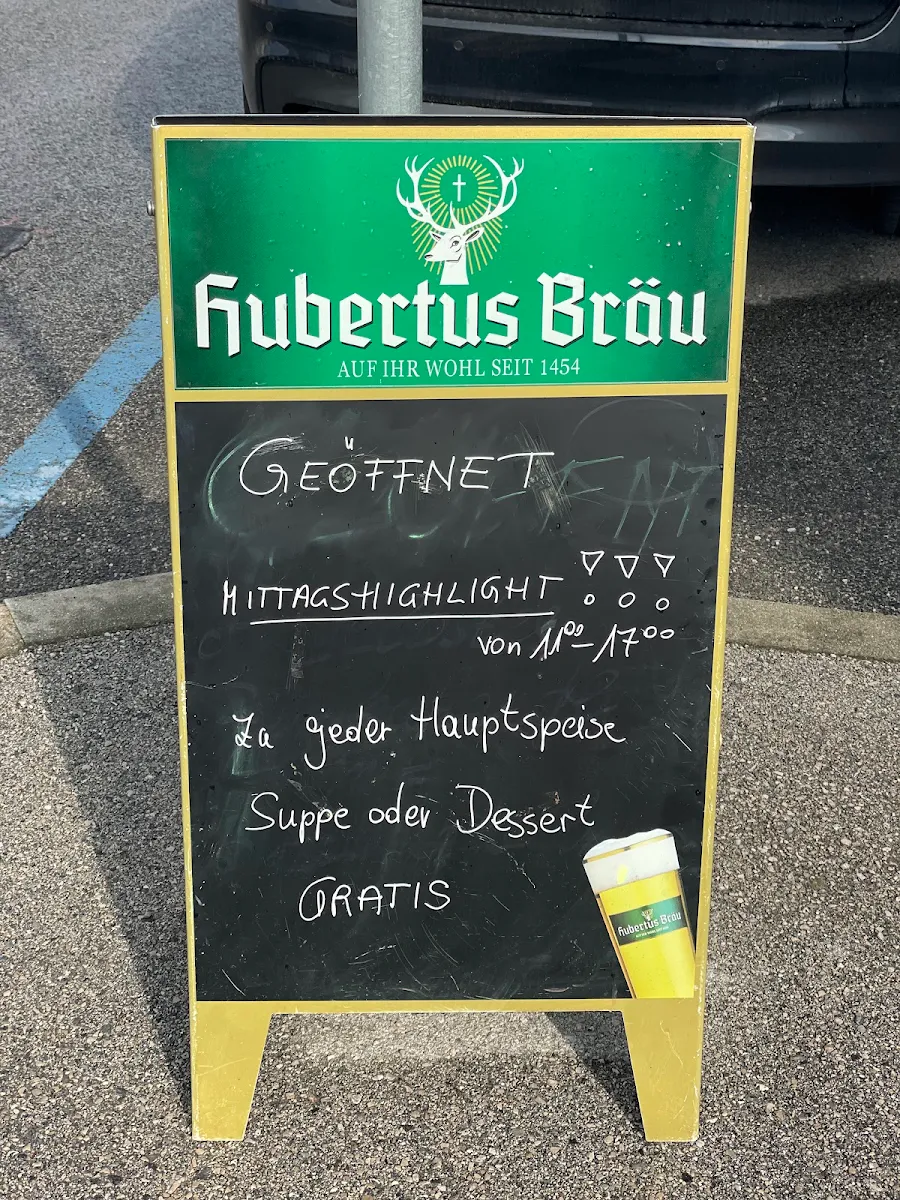 Hubertus Bräu
AUF IHR WOHL SEIT 1454
GEÖFFNET
MITTAGSHIGHLIGHT !!!
von 11⁰⁰-17⁰⁰
Zu jeder Hauptspeise
Suppe oder Dessert
GRATIS
Hubertus Bräu